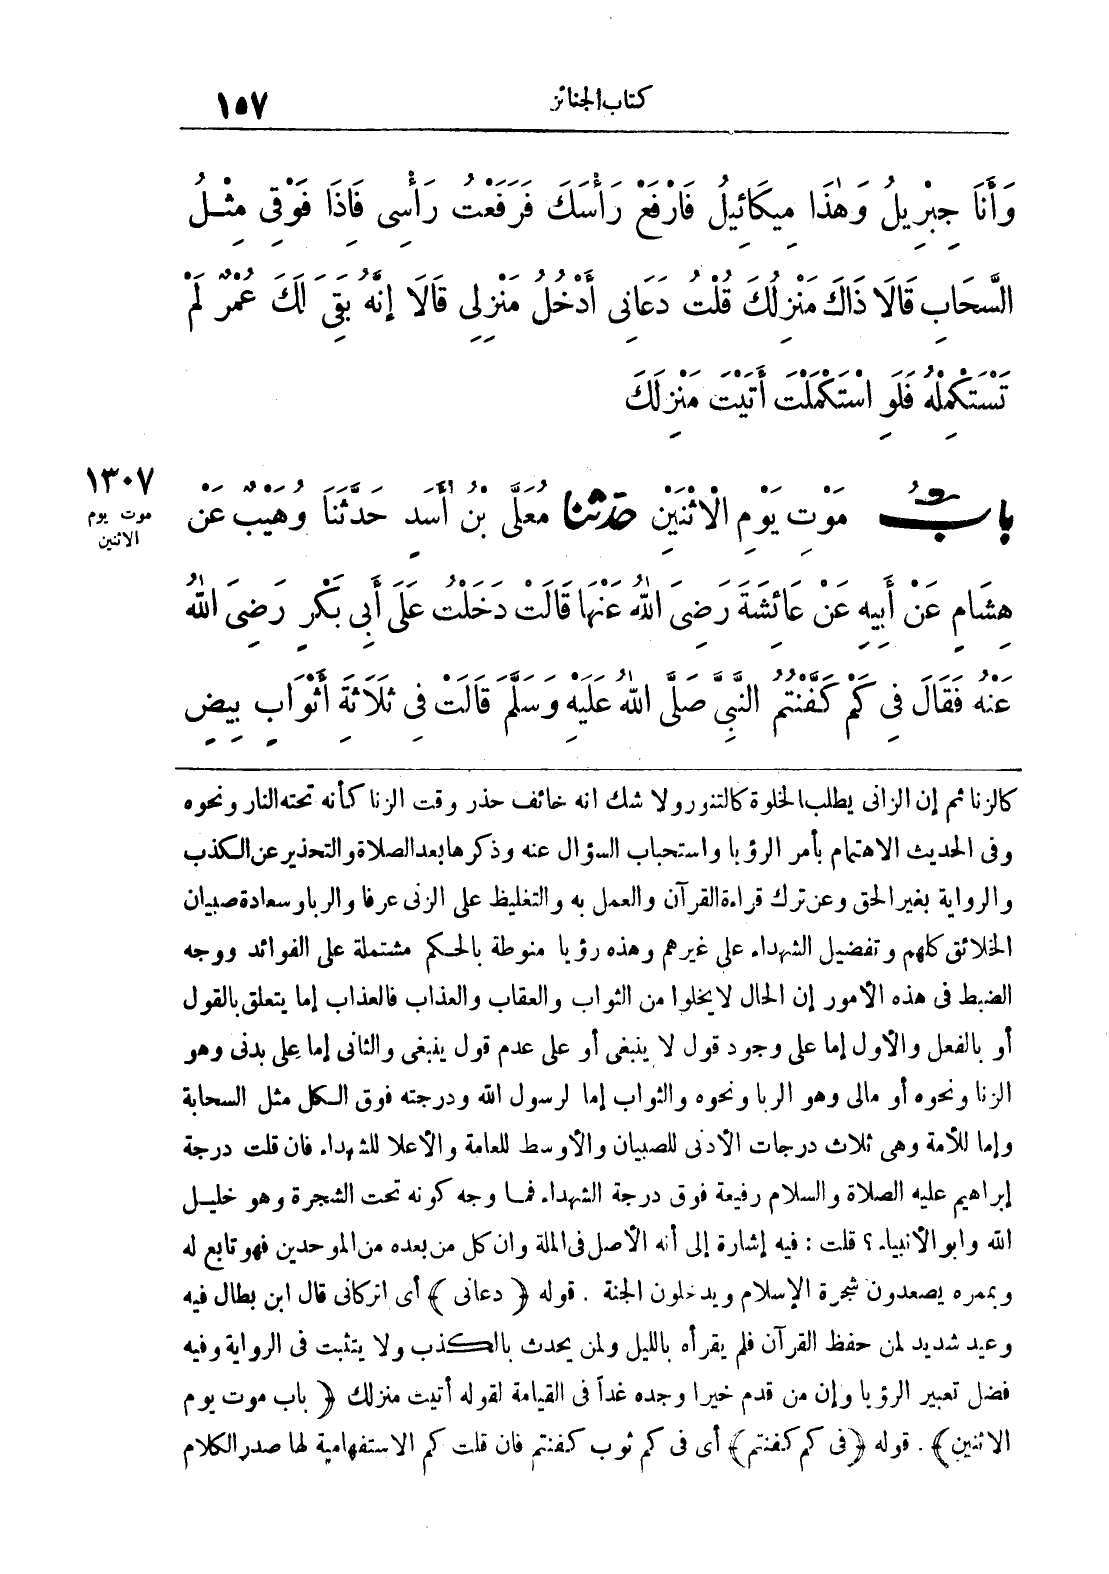 كتاب الجنائز
١٥٧
وَأَنَا جِبْرِيلُ وَهٰذَا مِيكَائِيلُ فَارْفَعْ رَأْسَكَ فَرَفَعْتُ رَأْسِى فَإِذَا فَوْقِى مِثْلُ
السَّحَابِ قَالَا ذَاكَ مَنْزِلُكَ قُلْتُ دَعَانِى أَدْخُلُ مَنْزِلِى قَالَا إِنَّهُ بَقِىَ لَكَ عُمْرٌ لَمْ
تَسْتَكْمِلْهُ فَلَوِ اسْتَكْمَلْتَ أَتَيْتَ مَنْزِلَكَ
بابُ مَوْتِ يَوْمِ الْاثْنَيْنِ حدثنا مُعَلَّى بْنُ أَسَدٍ حَدَّثَنَا وُهَيْبٌ عَنْ
١٣٠٧
موت يوم
الاثنين
هِشَامٍ عَنْ أَبِيهِ عَنْ عَائِشَةَ رَضِىَ اللهُ عَنْهَا قَالَتْ دَخَلْتُ عَلَى أَبِى بَكْرٍ رَضِىَ اللهُ
عَنْهُ فَقَالَ فِى كَمْ كَفَّنْتُمُ النَّبِىَّ صَلَّى اللهُ عَلَيْهِ وَسَلَّمَ قَالَتْ فِى ثَلَاثَةِ أَثْوَابٍ بِيضٍ
كالزنا ثم إن الزانى يطلب الخلوة كالتنور ولا شك انه خائف حذر وقت الزنا كأنه تحته النار ونحوه
وفى الحديث الاهتمام بأمر الرؤيا واستحباب السؤال عنه وذكرها بعد الصلاة والتحذير عن الكذب
والرواية بغير الحق وعن ترك قراءة القرآن والعمل به والتغليظ على الزنى عرفا والربا وسعادة صبيان
الخلائق كلهم وتفضيل الشهداء على غيرهم وهذه رؤيا منوطة بالحكم مشتملة على الفوائد ووجه
الضبط فى هذه الأمور إن الحال لا يخلوا من الثواب والعقاب والعذاب فالعذاب إما يتعلق بالقول
أو بالفعل والأول إما على وجود قول لا ينبغى أو على عدم قول ينبغى والثانى إما على بدنى وهو
الزنا ونحوه أو مالى وهو الربا ونحوه والثواب إما لرسول الله ودرجته فوق الكل مثل السحابة
وإما للأمة وهى ثلاث درجات الأدنى للصبيان والأوسط للعامة والأعلا للشهداء فان قلت درجة
إبراهيم عليه الصلاة والسلام رفيعة فوق درجة الشهداء فما وجه كونه تحت الشجرة وهو خليل
الله وابو الأنبياء ؟ قلت : فيه إشارة إلى أنه الأصل فى الملة وان كل من بعده من الموحدين فهو تابع له
وبممره يصعدون شجرة الإسلام ويدخلون الجنة . قوله ﴿ دعانى ﴾ أى اتركانى قال ابن بطال فيه
وعيد شديد لمن حفظ القرآن فلم يقرأه بالليل ولمن يحدث بالكذب ولا يتثبت فى الرواية وفيه
فضل تعبير الرؤيا وإن من قدم خيرا وجده غداً فى القيامة لقوله أتيت منزلك ﴿ باب موت يوم
الاثنين ﴾ . قوله ﴿ فى كم كفنتم ﴾ أى فى كم ثوب كفنتم فان قلت كم الاستفهامية لها صدر الكلام